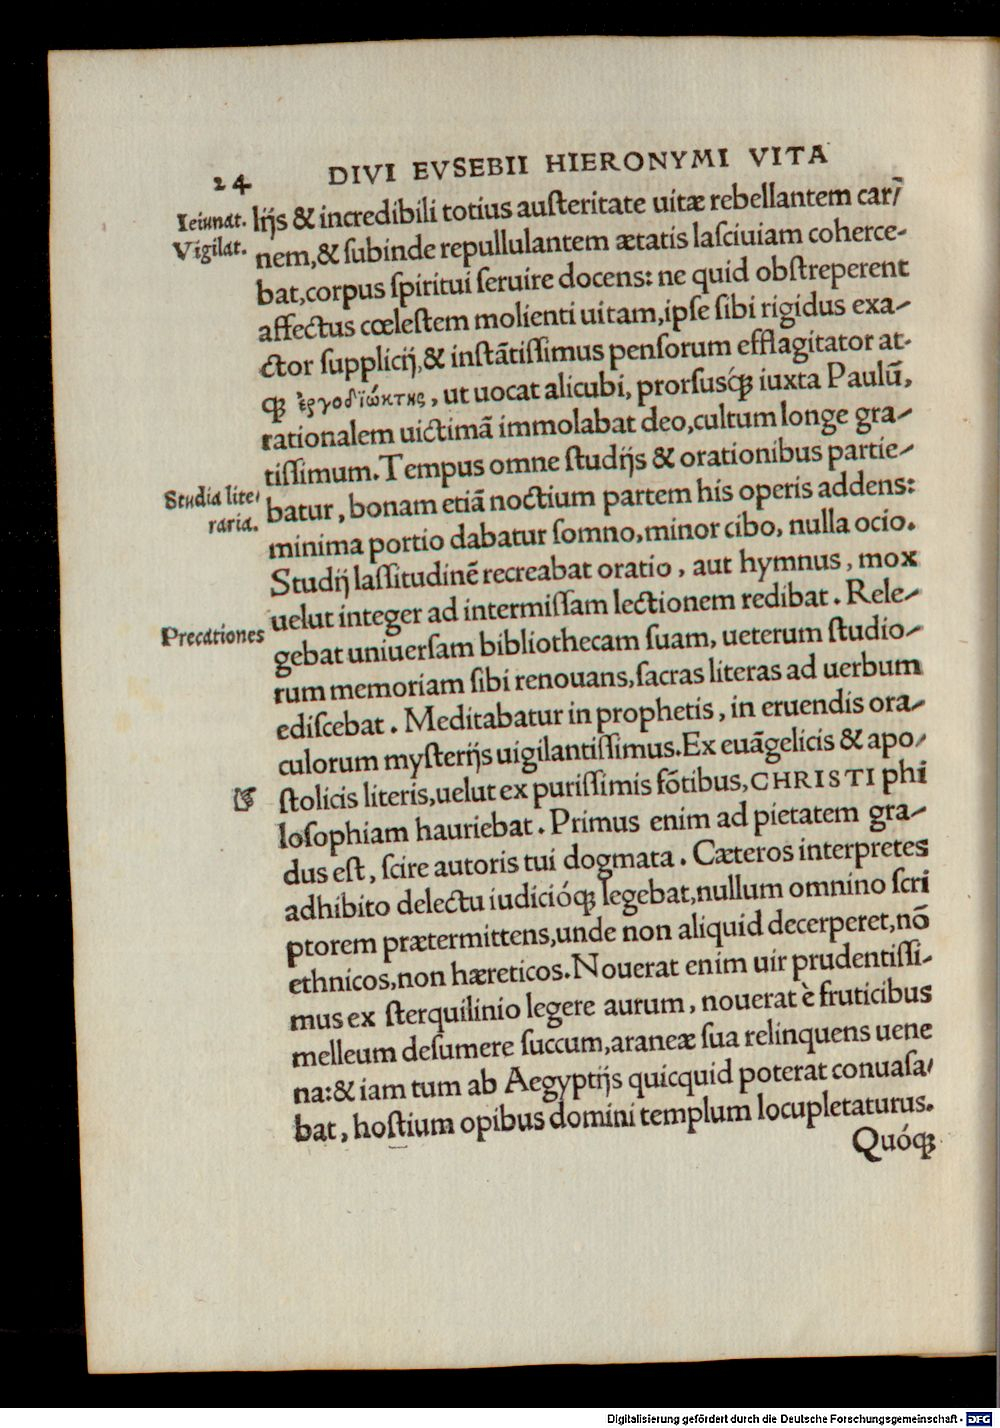 24 DIVI EVSEBII HIERONYMI VITA
Ieiunat. lijs & incredibili totius austeritate uitæ rebellantem car/
Vigilat. nem,& subinde repullulantem ætatis lasciuiam coherce-
bat,corpus spiritui seruire docens: ne quid obstreperent
affectus cœlestem molienti uitam,ipse sibi rigidus exa-
ctor supplicij,& instãtissimus pensorum efflagitator at-
qꝫ ἐργοδιώκτης, ut uocat alicubi, prorsusq́ꝫ iuxta Paulũ,
rationalem uictimã immolabat deo,cultum longe gra-
tissimum. Tempus omne studijs & orationibus partie-
Studia lite/
raria.
batur, bonam etiã noctium partem his operis addens:
minima portio dabatur somno,minor cibo, nulla ocio.
Studij lassitudinẽ recreabat oratio, aut hymnus, mox
uelut integer ad intermissam lectionem redibat. Rele-
Precationes
gebat uniuersam bibliothecam suam, ueterum studio-
rum memoriam sibi renouans,sacras literas ad uerbum
ediscebat. Meditabatur in prophetis, in eruendis ora-
culorum mysterijs uigilantissimus.Ex euãgelicis & apo/
☞ stolicis literis,uelut ex purissimis fõtibus,CHRISTI phi
losophiam hauriebat. Primus enim ad pietatem gra-
dus est, scire autoris tui dogmata. Cæteros interpretes
adhibito delectu iudicióqꝫ legebat,nullum omnino scri
ptorem prætermittens,unde non aliquid decerperet,nõ
ethnicos,non hæreticos. Nouerat enim uir prudentissi-
mus ex sterquilinio legere aurum, nouerat è fruticibus
melleum desumere succum,araneæ sua relinquens uene
na:& iam tum ab Aegyptijs quicquid poterat conuasa/
bat, hostium opibus domini templum locupletaturus.
Quóqꝫ
Digitalisierung gefördert durch die Deutsche Forschungsgemeinschaft - DFG